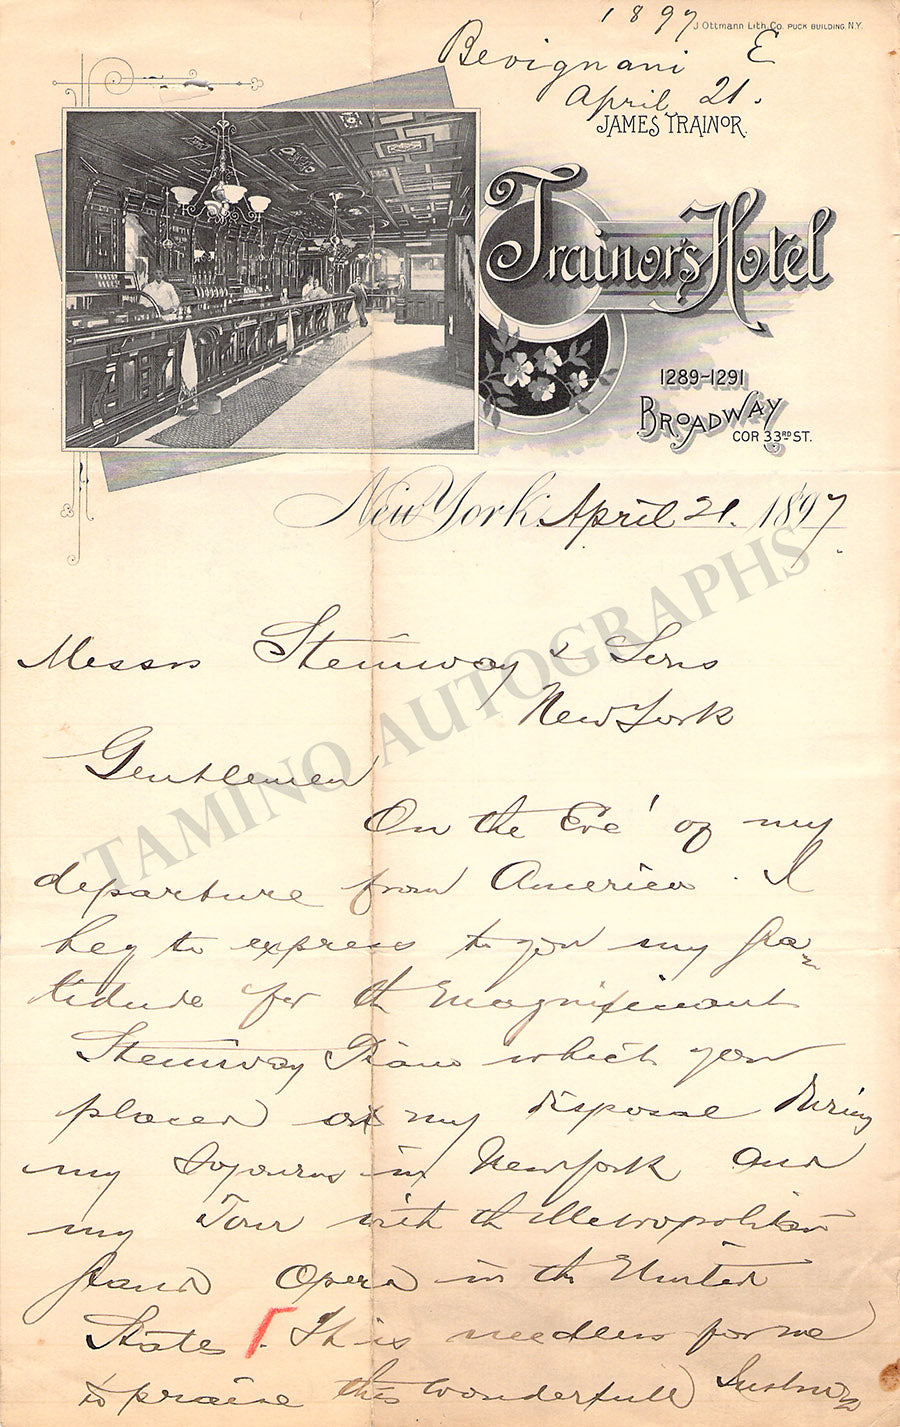 1897
J. Ottmann Lith. Co. PUCK BUILDING, N.Y.
Bevignani E
April 21.
JAMES TRAINOR.
Trainor's Hotel
1289-1291
BROADWAY
COR 33RD ST.
New York April 21. 1897
Messrs Steinway & Sons
New York
Gentlemen
On the Eve' of my
departure from America. I
beg to express to you my gra-
titude for th magnificant
Steinway Piano which you
placed at my disposal during
my Sojourns in New York and
my Tour with th Metropolitan
Grand Opera in th United
State. It is needless for me
to praise this wonderfull Instru-
TAMINO AUTOGRAPHS